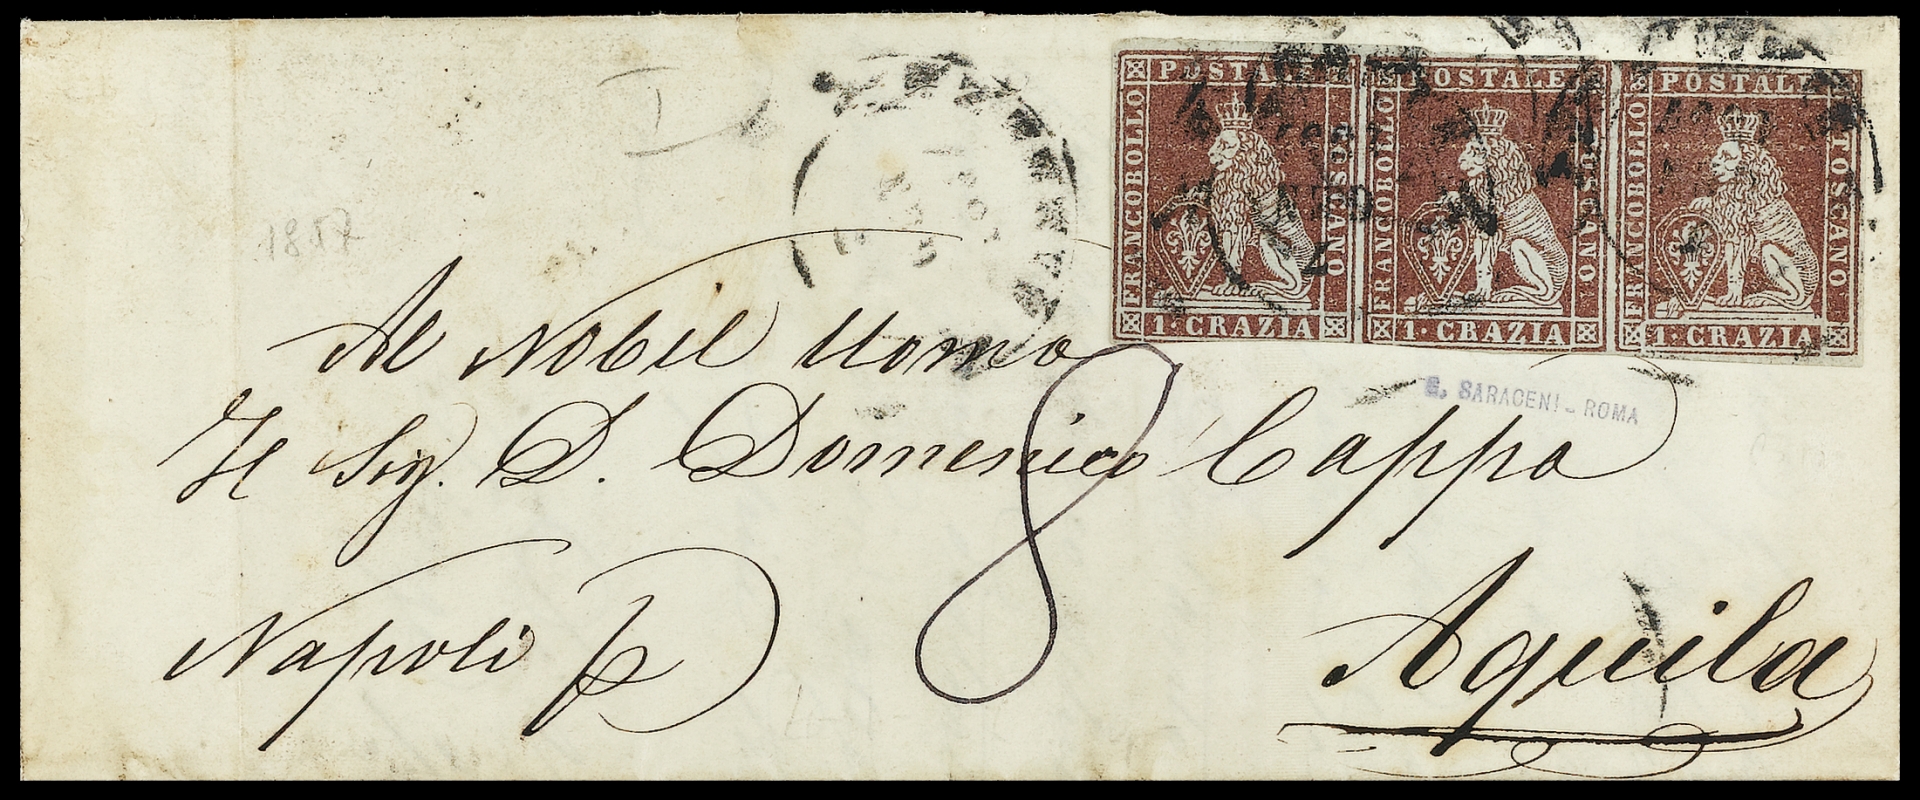 1857
POSTALE POSTALE POSTALE
FRANCOBOLLO TOSCANO FRANCOBOLLO TOSCANO FRANCOBOLLO TOSCANO
1·CRAZIA 1·CRAZIA 1·CRAZIA
G. SARACENI - ROMA
Al Nobil Uomo
Il Sig. D. Domenico Cappa
8
Napoli p
Aquila